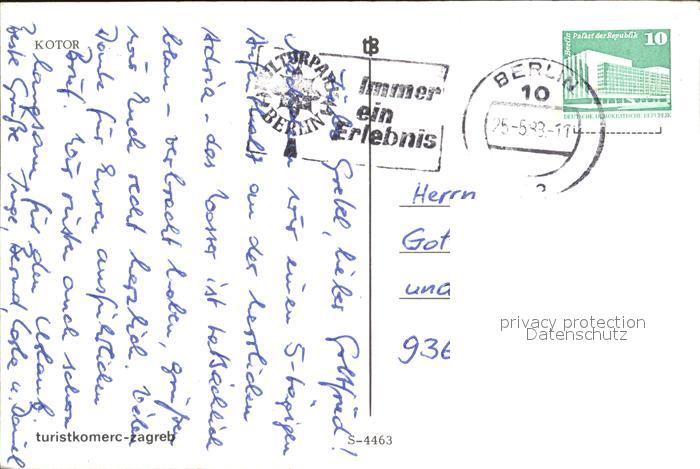 KOTOR
KULTURPARK
BERLIN
Immer
ein
Erlebnis
BERLIN
10
25-5.83-11
Berlin Palast der Republik 10
DEUTSCHE DEMOKRATISCHE REPUBLIK
Liebe Gretel, lieber Gottfried!
Nachdem wir einen 5-tägigen
Aufenthalt an der herrlichen
Adria - das Wasser ist tatsächlich
blau - verbracht haben, grüßen
wir Euch recht herzlich. Vielen
Dank für Euren ausführlichen
Brief. Wir rüsten auch schon
langsam für den Urlaub.
Beste Grüße Inge, Bernd, u. Daniel
Herrn
Got
und
936
turistkomerc-zagreb
S-4463
privacy protection
Datenschutz